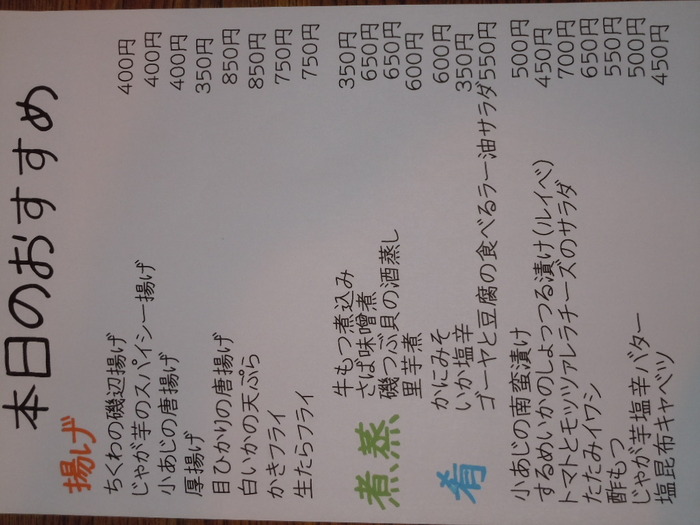 本日のおすすめ
揚げ
ちくわの磯辺揚げ 400円
じゃが芋のスパイシー揚げ 400円
小あじの唐揚げ 400円
厚揚げ 350円
目ひかりの唐揚げ 850円
白いかの天ぷら 850円
かきフライ 750円
生たらフライ 750円
煮、蒸
牛もつ煮込み 350円
さば味噌煮 650円
磯つぶ貝の酒蒸し 650円
里芋煮 600円
肴
かにみそ 600円
いか塩辛 350円
ゴーヤと豆腐の食べるラー油サラダ 550円
小あじの南蛮漬け 500円
するめいかのしょっつる漬け(ルイベ) 450円
トマトとモッツァレラチーズのサラダ 700円
たたみイワシ 650円
酢もつ 550円
じゃが芋塩辛バター 500円
塩昆布キャベツ 450円